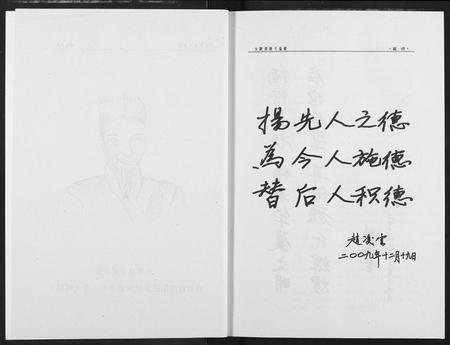 揚先人之德
為今人施德
替后人积德
赵凌雲
二〇〇九年十二月十九日